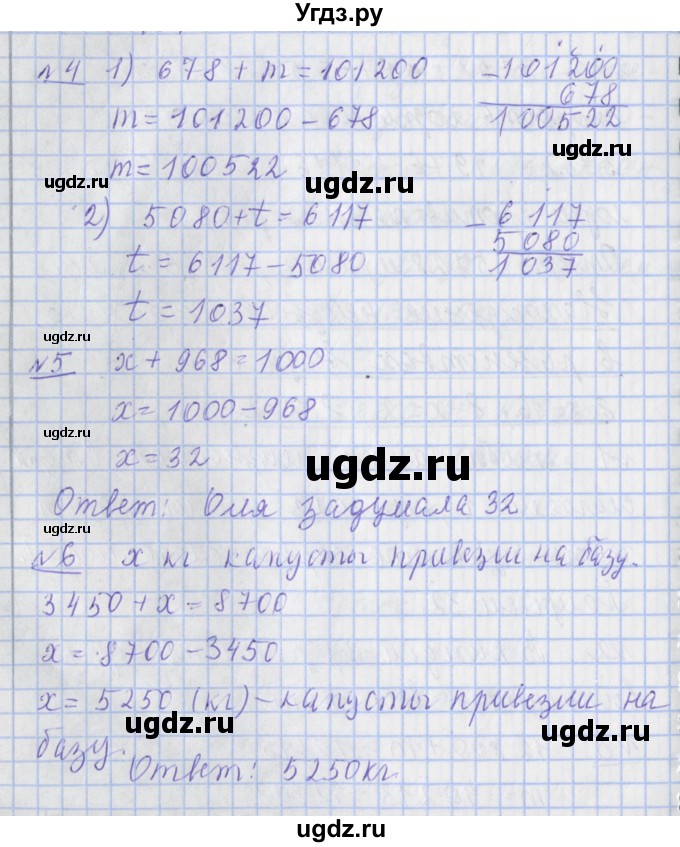 Угдз.ру
№4 1) 678 + m = 101200
m = 101200 - 678
m = 100522
- 101200
678
100522
2) 5080 + t = 6117
t = 6117 - 5080
t = 1037
- 6117
5080
1037
№5 x + 968 = 1000
x = 1000 - 968
x = 32
Ответ: Оля задумала 32
№6 x кг капусты привезли на базу.
3450 + x = 8700
x = 8700 - 3450
x = 5250 (кг) - капусты привезли на
базу.
Ответ: 5250 кг
ugdz.ru
ugdz.ru
ugdz.ru
ugdz.ru
ugdz.ru
ugdz.ru
ugdz.ru
ugdz.ru
ugdz.ru
ugdz.ru
ugdz.ru